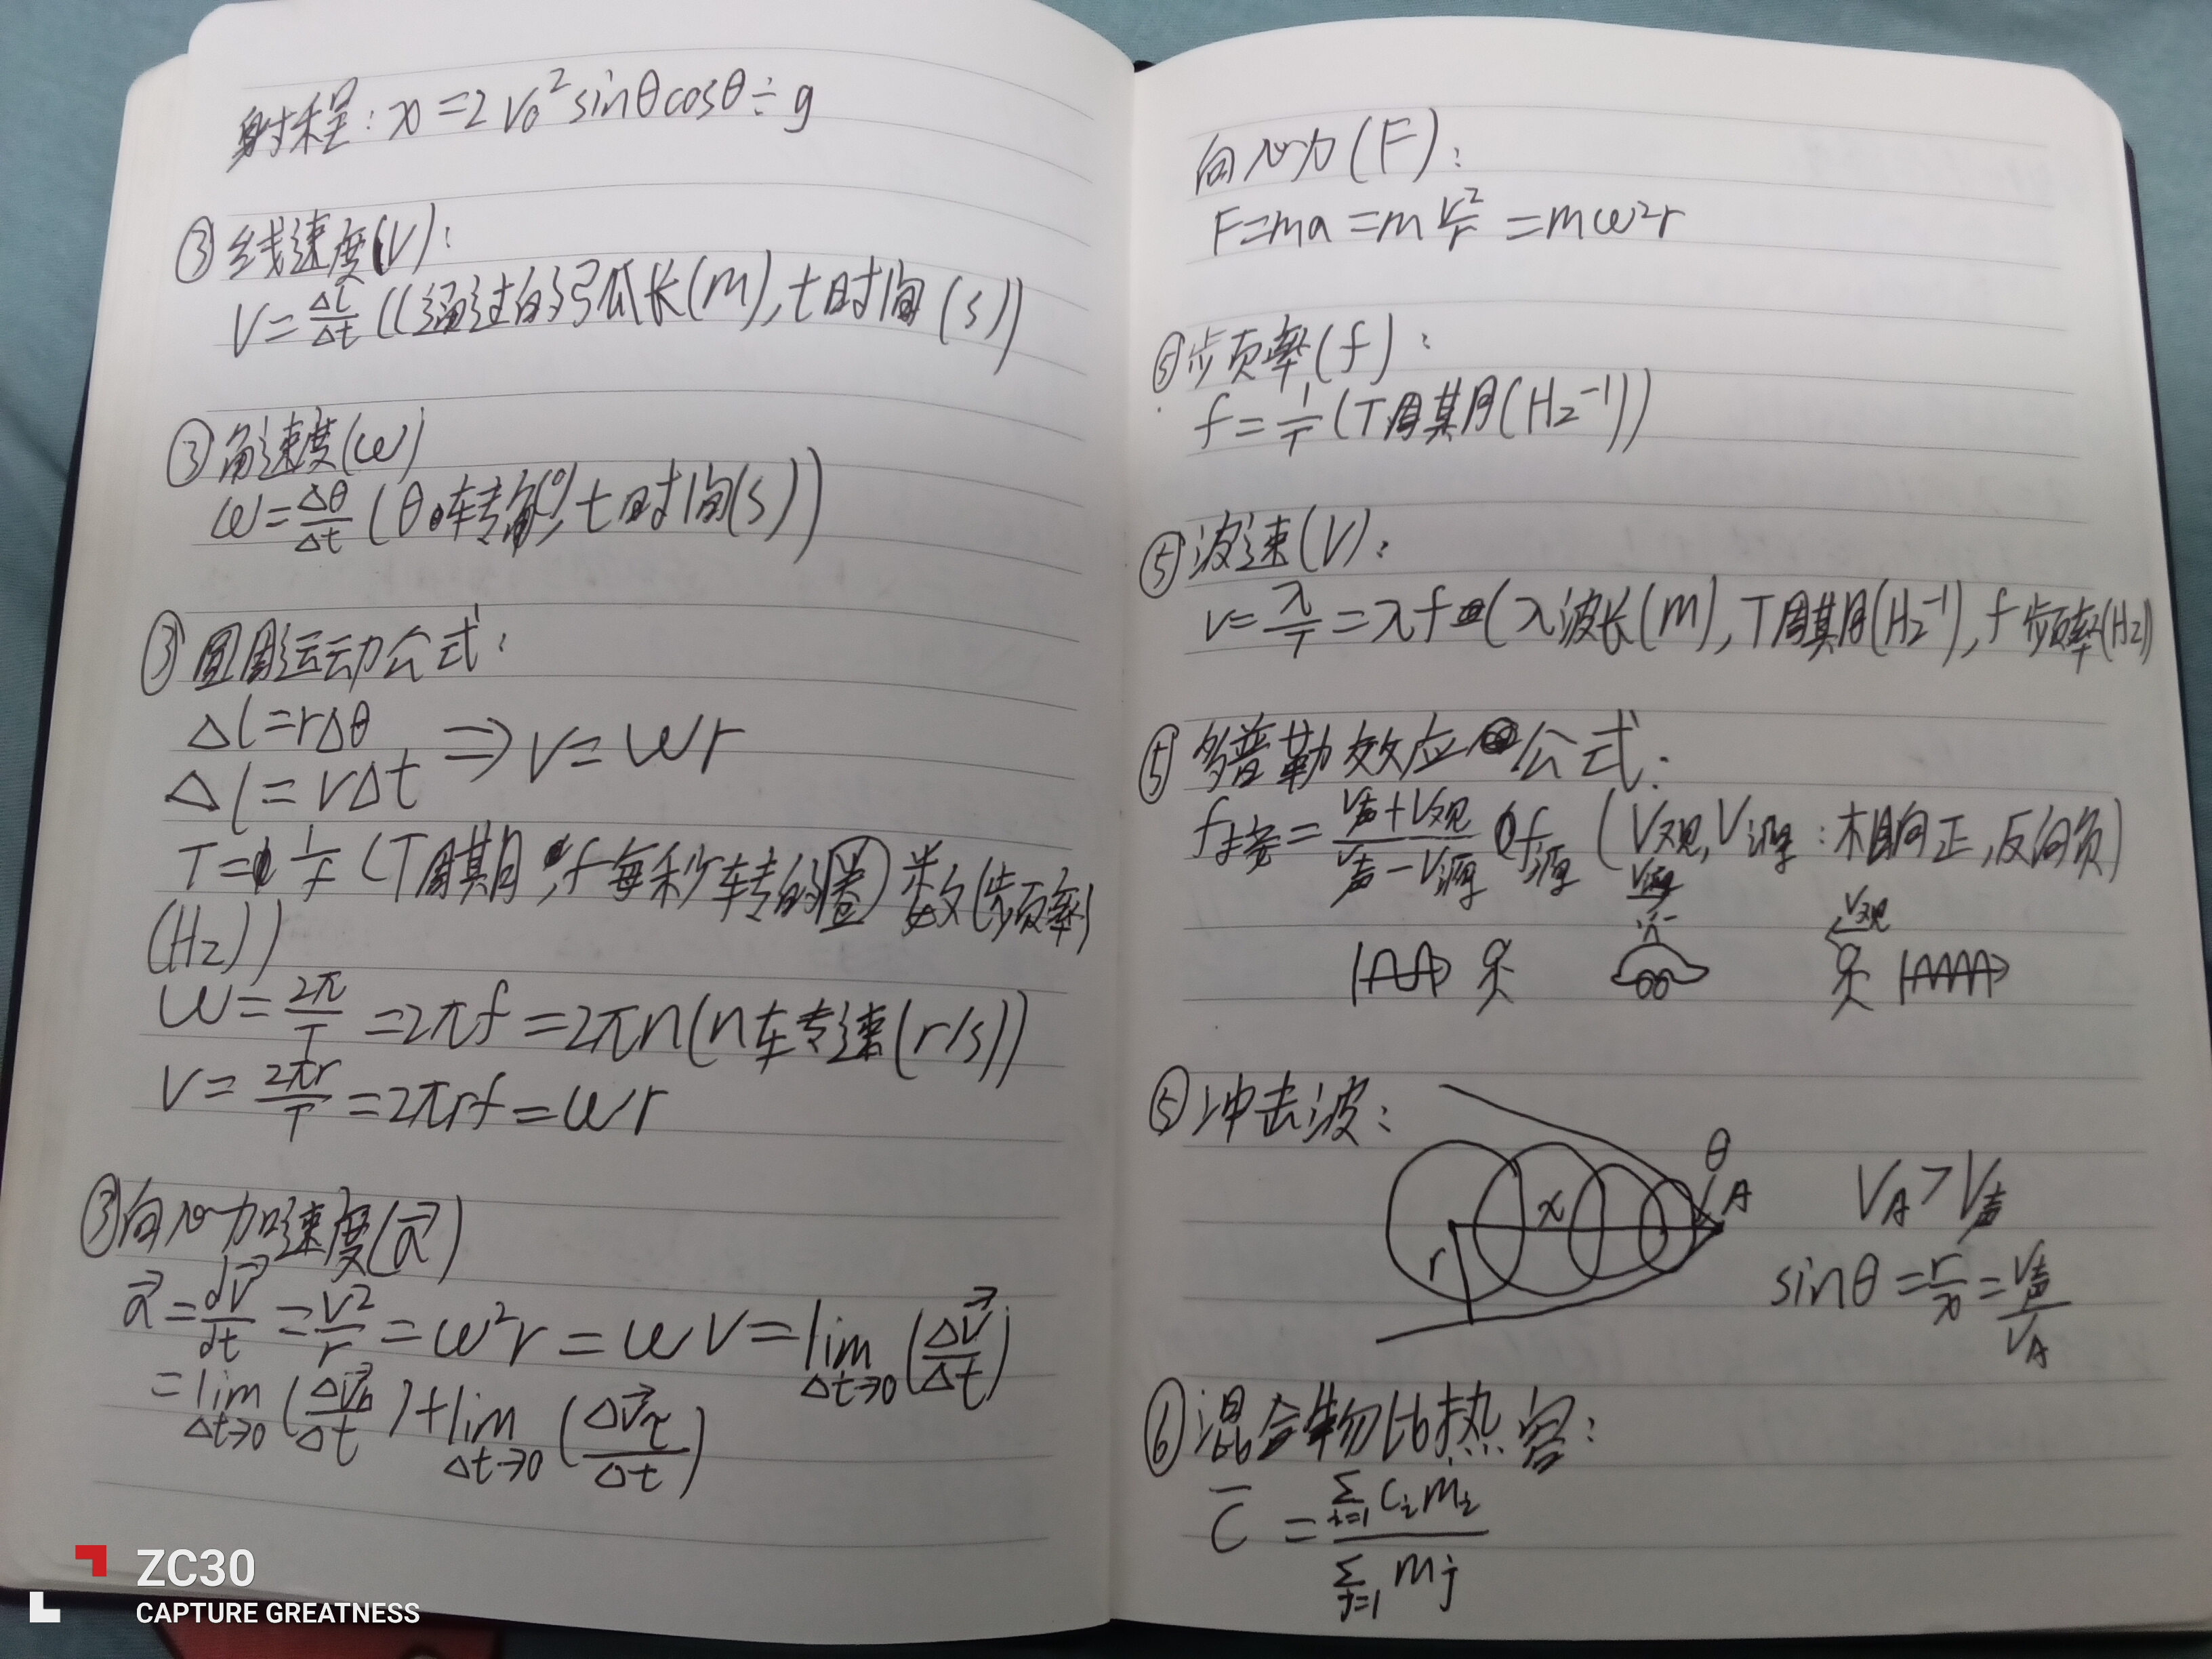 射程：x=2v₀²sinθcosθ÷g
③线速度(V)：
V=Δl/Δt (l通过的弧长(m),t时间(s))
③角速度(ω)
ω=Δθ/Δt (θ转角(°),t时间(s))
③圆周运动公式：
Δl=rΔθ
Δl=vΔt ⇒ v=ωr
T=1/f (T周期,f每秒转的圈数(频率)
(Hz))
ω=2π/T=2πf=2πn(n转速(r/s))
V=2πr/T=2πrf=ωr
③向心加速度(a⃗)
a⃗=dv⃗/dt=v²/r=ω²r=ωv=lim Δt→0 (Δv⃗/Δt)
=lim Δt→0 (Δv⃗ₙ/Δt)+lim Δt→0 (Δv⃗τ/Δt)
向心力(F)：
F=ma=mv²/r=mω²r
⑤频率(f)：
f=1/T (T周期(Hz⁻¹))
⑤波速(V)：
v=λ/T=λf(λ波长(m),T周期(Hz⁻¹),f频率(Hz))
⑤多普勒效应公式：
f接=(V声+V观)/(V声-V源) f源 (V观,V源：相向正,反向负)
V源
V观
⑤冲击波：
θ
x A
r
V_A>V声
sinθ=r/x=V声/V_A
⑥混合物比热容：
c̄=Σi=1 cᵢmᵢ/Σj=1 mj
ZC30
CAPTURE GREATNESS